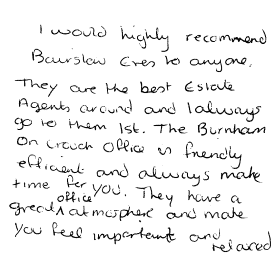 I would highly recommend
Bairstow Eves to anyone.
They are the best Estate
Agents around and I always
go to them 1st. The Burnham
On Crouch Office is friendly
efficient and always make
time for you. They have a
great office atmosphere and make
you feel important and relaxed